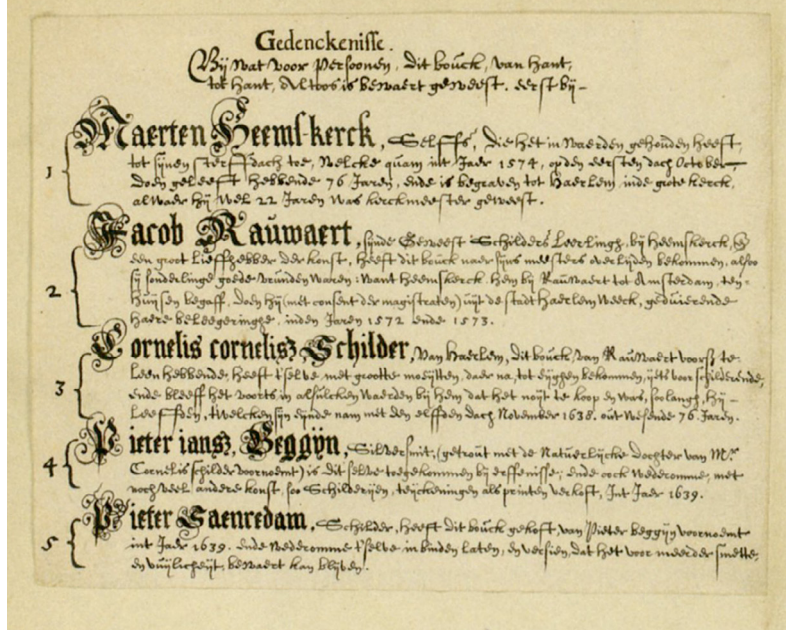 Gedenckenisse.
Bij wat voor Persoonen, dit boúck, van hant,
tot hant, altoos is bewaert geweest. eerst bij—
1 Maerten Heemskerck, Selffs, die het in waerden gehouden heeft,
tot sijnen sterffdach toe, welcke quam int Jaer 1574, op den eersten dach October,
doen geleefft hebbende 76 Jaren, ende is begraven tot Haerlem, inde grote kerck,
alwaer hij wel 22 Jaren was kerckmeester geweest.
2 Jacob Raúwaert, sijnde Geweest Schilders Leerlingh, bij Heemskerck,
een groot Lieffhebber der konst, heefft dit boúck naer sijns meesters overlijden bekommen, alsoo
sij sonderlinge goede vrúnden waren: want Heemskerck hem bij Raúwaert tot Amsterdam, ten-
húijsen begaff, doen hij (met consent der magistraten) úijt de stadt haerlem weeck, gedúierende
haere beleegeringhe, inden Jaren 1572 ende 1573.
3 Cornelis cornelisz. Schilder, van haerlem, dit boúck van Raúwaert voorsz te
Leen hebbende, heefft t'selve met grootte moeijtten, daer na, tot eijggen bekommen, ijets voor schilderende,
ende bleeff het voorts in alsúlcken waerden bij hem dat het noijt te koop en was, solangh, hij—
Leeffden, twelck sijn eijnde nam met den elffden dach November 1638. oút wesende 76 Jaren.
4 Pieter iansz. Beggijn, Silversmit, (getroút met de Natúerlijcke dochter van Mr.
Cornelis schilder voornoemt) is dit selve toegekommen bij erffenisse, ende oock wederomme, met
noch veel andere konst, soo Schilderijen, teijckeningen als printen verkoft, Int Jaer 1639.
5 Pieter Saenredam, Schilder, heefft dit boúck gekoft, van Pieter beggijn voornoemt
int Jaer 1639. ende wederomme t'selve in binden laten, en versien, dat het voor meerder smette,
en vúijlicheijt, bewaert kan blijven.